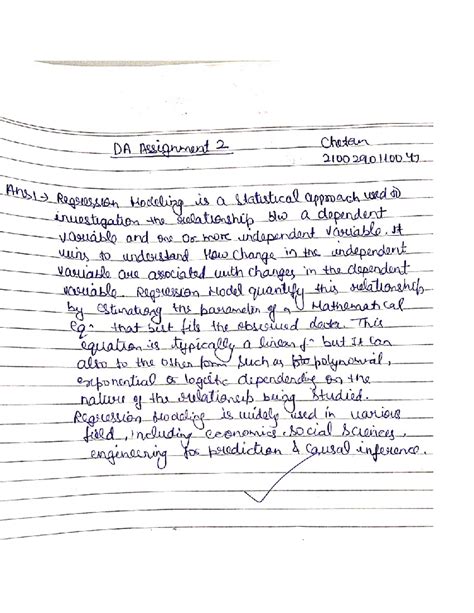 DA Assignment 2
Chetan
2100290110047
Ans1→ Regression Modeling is a statistical approach used to
investigation the relationship b/w a dependent
variable and one or more independent variable. It
aims to understand How change in the independent
variable are associated with changes in the dependent
variable. Regression Model quantify this relationship
by estimating the parameter of a Mathematical
eqn that best fits the observed data. This
equation is typically a linear fn but it can
also to the other form such as polynomial,
exponential or logistic dependending on the
nature of the relationship being studied.
Regression Modeling is widely used in various
field, including economics, social sciences,
engineering for prediction & causal inference.